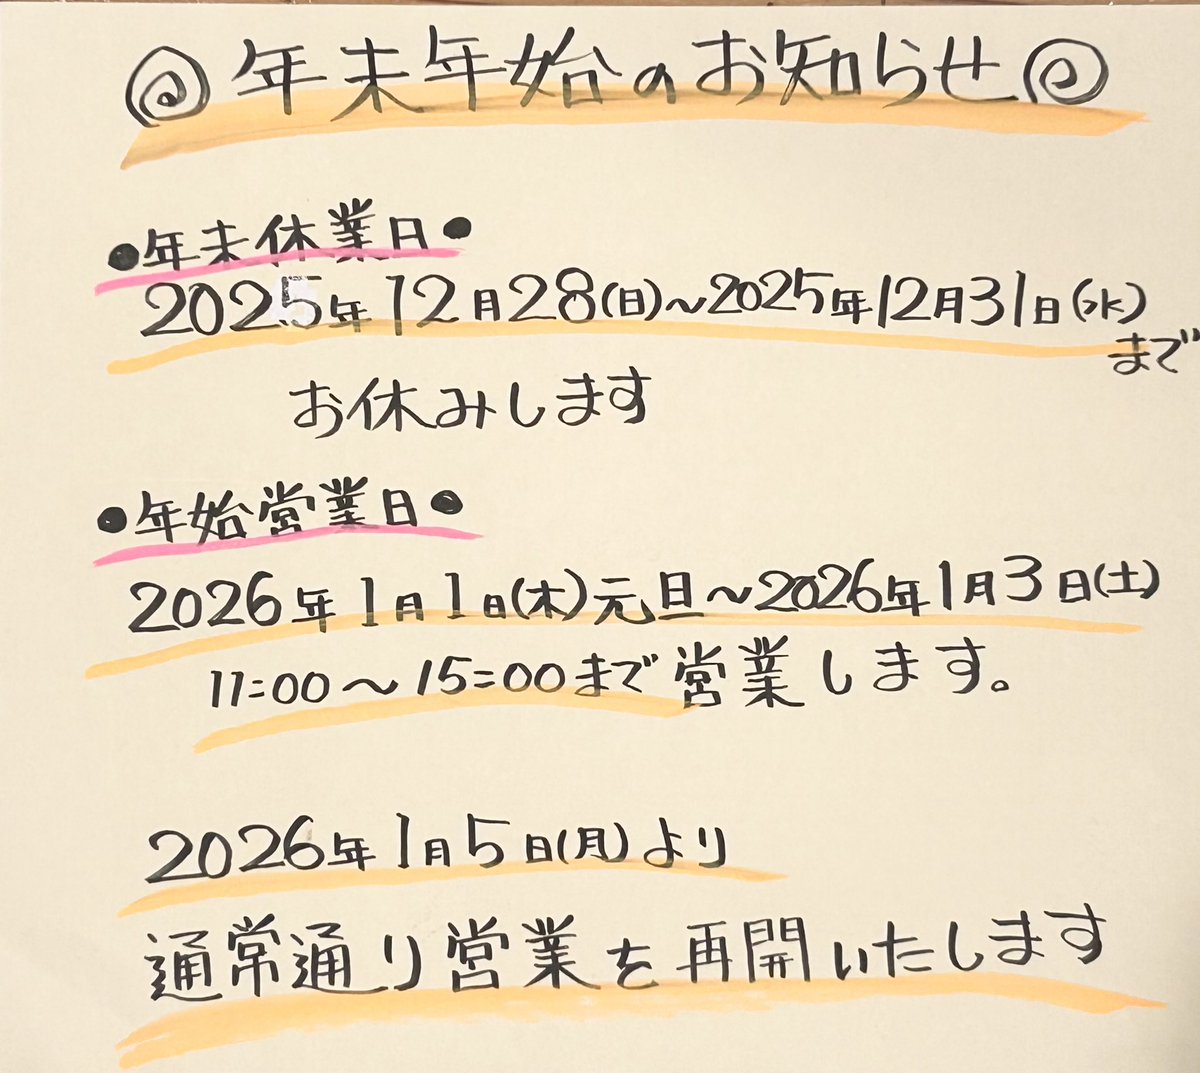 年末年始のお知らせ
●年末休業日●
2025年12月28(日)〜2025年12月31日(水)
まで
お休みします
●年始営業日●
2026年1月1日(木)元旦〜2026年1月3日(土)
11:00〜15:00まで営業します。
2026年1月5日(月)より
通常通り営業を再開いたします